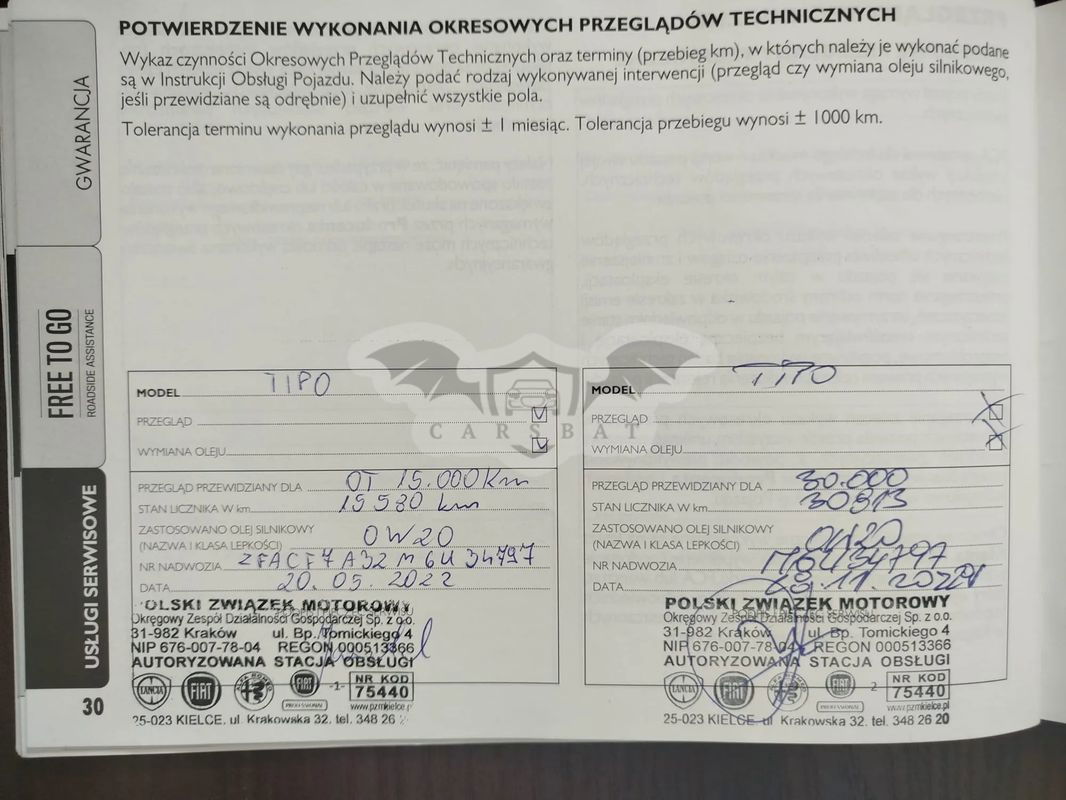 POTWIERDZENIE WYKONANIA OKRESOWYCH PRZEGLĄDÓW TECHNICZNYCH
Wykaz czynności Okresowych Przeglądów Technicznych oraz terminy (przebieg km), w których należy je wykonać podane
są w Instrukcji Obsługi Pojazdu. Należy podać rodzaj wykonywanej interwencji (przegląd czy wymiana oleju silnikowego,
jeśli przewidziane są odrębnie) i uzupełnić wszystkie pola.
Tolerancja terminu wykonania przeglądu wynosi ± 1 miesiąc. Tolerancja przebiegu wynosi ± 1000 km.
GWARANCJA
FREE TO GO
ROADSIDE ASSISTANCE
USŁUGI SERWISOWE
30
CARSBAT
MODEL TIPO
PRZEGLĄD
WYMIANA OLEJU
PRZEGLĄD PRZEWIDZIANY DLA OT 15.000 Km
STAN LICZNIKA W km 15580 km
ZASTOSOWANO OLEJ SILNIKOWY
(NAZWA I KLASA LEPKOŚCI) 0W20
NR NADWOZIA ZFACF7A32M6U34797
DATA 20.05.2022
POLSKI ZWIĄZEK MOTOROWY
Okręgowy Zespół Działalności Gospodarczej Sp. z o.o.
31-982 Kraków ul. Bp. Tomickiego 4
NIP 676-007-78-04 REGON 000513366
AUTORYZOWANA STACJA OBSŁUGI
LANCIA FIAT ALFA ROMEO FIAT PROFESSIONAL -1- NR KOD
75440
www.pzmkielce.p
25-023 KIELCE, ul. Krakowska 32. tel. 348 26
MODEL TIPO
PRZEGLĄD
WYMIANA OLEJU
PRZEGLĄD PRZEWIDZIANY DLA 30.000
STAN LICZNIKA W km 30813
ZASTOSOWANO OLEJ SILNIKOWY
(NAZWA I KLASA LEPKOŚCI) 0W20
NR NADWOZIA M6U34797
DATA
POLSKI ZWIĄZEK MOTOROWY
Okręgowy Zespół Działalności Gospodarczej Sp. z o.o.
31-982 Kraków ul. Bp. Tomickiego 4
NIP 676-007-78-04 REGON 000513366
AUTORYZOWANA STACJA OBSŁUGI
LANCIA FIAT ALFA ROMEO FIAT PROFESSIONAL 2 NR KOD
75440
www.pzmkielce.pl
25-023 KIELCE, ul Krakowska 32. tel. 348 26 20